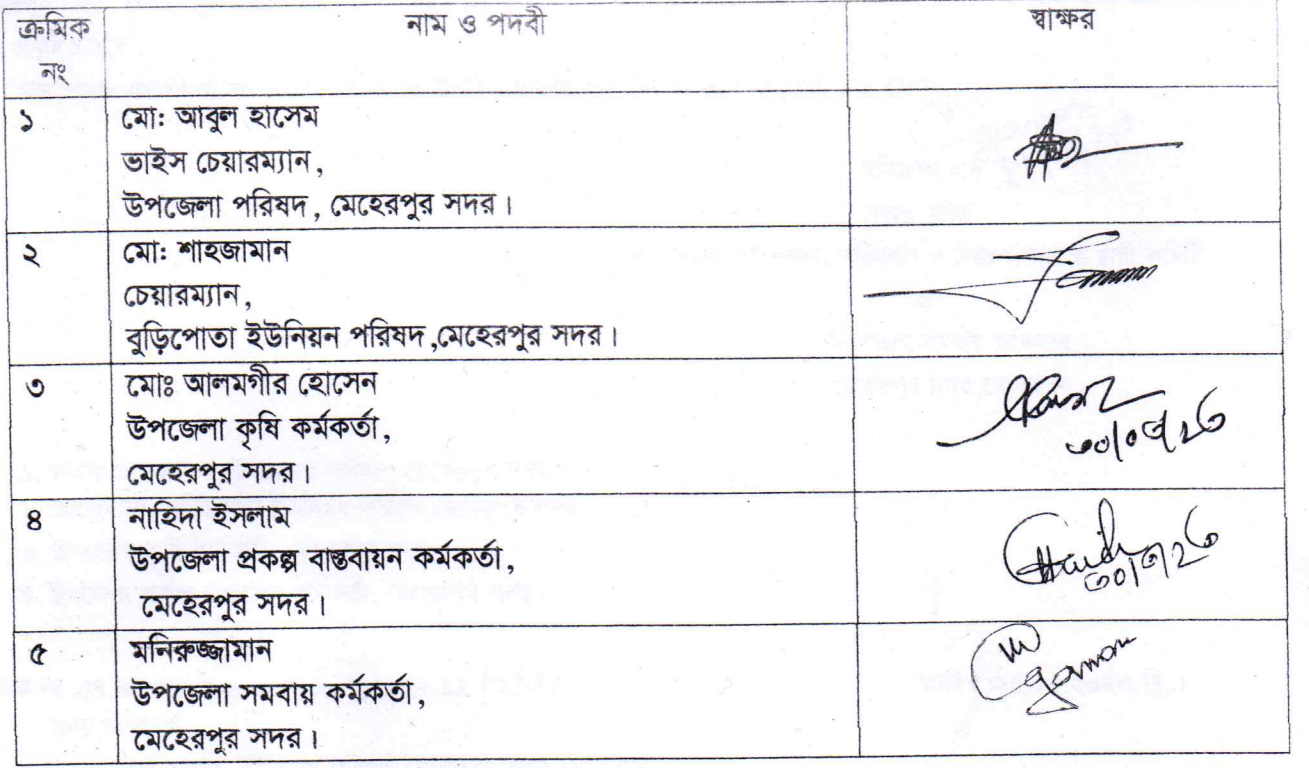 ক্রমিক নাম ও পদবী স্বাক্ষর
নং
১ মো: আবুল হাসেম
ভাইস চেয়ারম্যান,
উপজেলা পরিষদ, মেহেরপুর সদর।
২ মো: শাহজামান
চেয়ারম্যান,
বুড়িপোতা ইউনিয়ন পরিষদ,মেহেরপুর সদর।
৩ মোঃ আলমগীর হোসেন
উপজেলা কৃষি কর্মকর্তা,
মেহেরপুর সদর।
৪ নাহিদা ইসলাম
উপজেলা প্রকল্প বাস্তবায়ন কর্মকর্তা,
মেহেরপুর সদর।
৫ মনিরুজ্জামান
উপজেলা সমবায় কর্মকর্তা,
মেহেরপুর সদর।